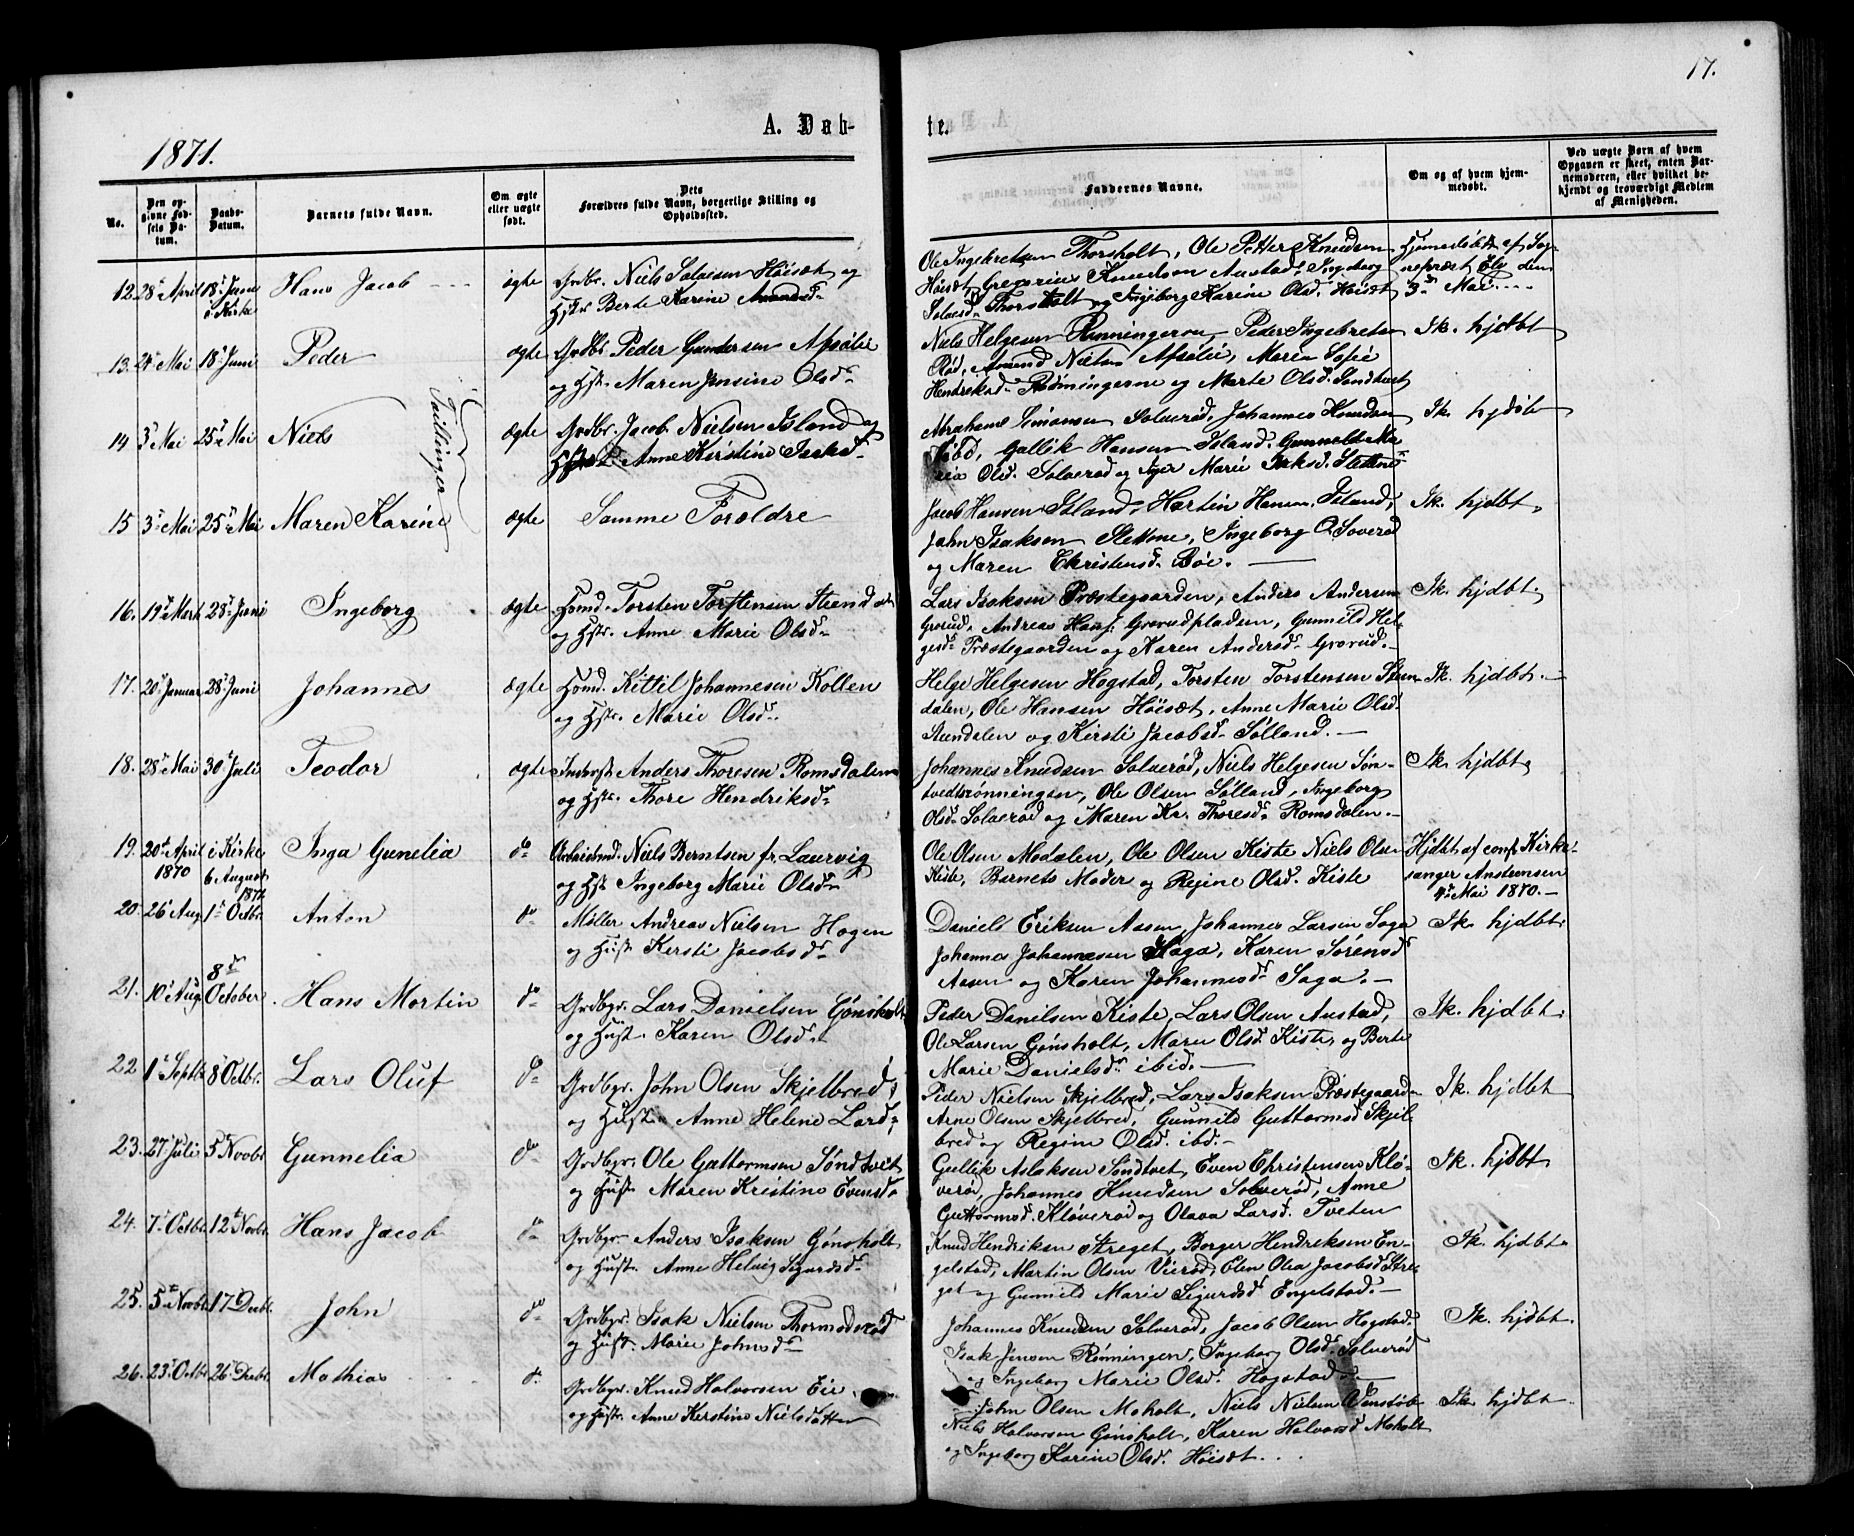 17.
A. Døb-
te.
1871.
No.
Den op-
givne Fød-
sels Da-
tum.
Daabs-
Datum.
Barnets fulde Navn.
Om ægte
eller uægte
født.
Dets
Forældres fulde Navn, borgerlige Stilling og
Opholdssted.
Faddernes Navne.
Om og af hvem hjem-
medøbt.
Ved uægte Børn af hvem
Opgaven er skeet, enten Bar-
nemoderen, eller hvilket be-
kjendt og troværdigt Medlem
af Menigheden.
12. 28de April 18de Juni i Kirke Hans Jacob ægte Grdbr. Niels Solvesen Höisæt og
Hstr Berte Karine Amunds.
Ole Ingebretsen Thorsholt, Ole Petter Knudsen
Höisæt, Gregorius Knudsen Austad, Ingeborg
Solvesd. Thorsholt og Ingeborg Karine Olsd. Höisæt
Hjemmedöbt af Sog-
nepræst Ely den
3die Mai
13. Mai 18de Juni Peder ægte Grdbr Peder Gundersen
og Hstr. Maren Jensine Olsd.
Niels Helgesen Rønningerne, Peder Ingebretsen
Röd, Amund Nielsen, Maren Sofie
Hendriksd. Rønningerne og Marte Olsd. Sundtvet
Ik. hjdbt
Tvillinger
14 3die Mai 25de Mai Niels ægte Grdbr. Jacob Nielsen Island og
Hstr Anne Kirstine Isaksd.
Abraham Simonsen Solverød, Johannes Knudsen
Gullik Hansen Island, Gunnild Ma-
ria Olsd. Solverød og Inger Marie Isaksd. Stettene
Ik. hjdöbt
15 3die Mai 25de Mai Maren Karine ægte Samme Forældre
Jacob Hansen Island, Martin Hansen Island,
John Isaksen Stettene, Ingeborg O. Soverød
og Maren Christensd. Böe.
Ik. hjdbt.
16. 19de Marts 28de Juni Ingeborg ægte Husmd. Torsten Torstensen Stendalen
og Hstr. Anne Marie Olsd.
Lars Isaksen Præstegaarden, Anders Andersen
Grorud, Andreas Hans. Grorudpladsen, Gunnild Hel-
gesd. Præstegaarden og Karen Andersd. Grorud.
Ik. hjdbt.
17. 20de Januar 28de Juni Johannes ægte Husmd. Kittil Johannesen Kollen
og Hstr. Marie Olsd.
Helge Helgesen Hogstad, Torsten Torstensen Sten-
dalen, Ole Hansen Höisæt, Anne Marie Olsd.
Stendalen og Kirsti Jacobsd. Sølland.
Ik. hjdbt.
18. 28de Mai 30te Juli Teodor ægte Inderst Anders Thoresen Romsdalen
og Hstr. Thore Hendriksd.
Johannes Knudsen Solverød, Niels Helgesen Søn-
tvedtrönningen, Ole Olsen Sølland, Ingeborg
Olsd. Solverød og Maren Ka. Thoresd. Romsdalen.
Ik. hjdbt,
19. 20de April 1870 i Kirke 6 August 1871 Inga Gunelia do Arbeidsmd. Niels Berntsen fr. Laurvig
og Hst Ingeborg Marie Olsd.
Ole Olsen Modalen, Ole Olsen Kiste, Niels Olsen
Kiste, Barnets Moder og Regine Olsd. Kiste
Hjdbt af const Kirke-
sanger Anstensen
4de Mai 1870.
20. 26 Aug. 1ste Octbr. Anton do Møller Andreas Nielsen Hagen
og Hust Kersti Jacobsd.
Daniels Eriksen Aasen, Johannes Larsen Saga
Johannes Johannesen Haga, Karen Sörensd
Aasen og Karen Johannesd. Saga.
Ik. hjdbt.
21. 10de Aug. 8de October Hans Martin do Grdbgr. Lars Danielsen Gjönsholt
og Hust. Karen Olsd.
Peder Danielsen Kiste, Lars Olsen Austad,
Ole Larsen Gjönsholt, Maren Olsd Kiste og Berte
Marie Danielsd. ibid.
Ik. hjdbt.
22 1ste Septbr 8de Octbr. Lars Oluf do Grdbgr. John Olsen Skjelbred
og Hust. Anne Helene Larsd.
Peder Nielsen Skjelbred, Lars Isaksen Præstegaard
Arne Olsen Skjelbred, Gunnild Guttormsd Skjel-
bred og Regine Olsd. ibd.
Ik. hjdbt
23. 27de Juli 5te Novbr Gunnelia do Grdbgr. Ole Guttormsen Söndtvet
og Hust. Maren Kristine Evensd.
Gullik Aslaksen Söndtvet, Even Christensen Klö-
verød, Johannes Knudsen Solverød, Anne
Guttormsd. Kløverød og Olava Larsd. Tveten
Ik. hjdbt
24. 7de Octbr. 12te Novbr. Hans Jacob do Grdbgr. Anders Isaksen Gjönsholt
og Hust. Anne Helvig Sigurdsd.
Knud Hendriksen Streget, Borger Hendriksen En-
gelstad, Martin Olsen Vierød, Elen Olea Jacobsd Stre-
get og Gunnild Marie Sigurdsd Engelstad.
Ik. hjdbt.
25. 5te Novbr. 17de Decbr. John do Grdbgr. Isak Nielsen Thormodsrød
og Hust. Marie Johnsd.
Johannes Knudsen Solverød, Jacob Olsen Hogstad.
Isak Jensen Rønningen, Ingeborg Olsd. Solverød
og Ingeborg Marie Olsd. Hogstad.
Ik. hjdbt.
26. 23de Octbr 26de Decbr. Mathias do Grdbgr. Knud Halvorsen Eie
og Hustr. Anne Kerstine Nielsdatter
John Olsen Moholt, Niels Nielsen Venstöb
Niels Halvorsen Gjönsholt, Karen Halvorsd Moholt
og Ingeborg Karine Olsd. Höisæt.
Ik. hjdbt.